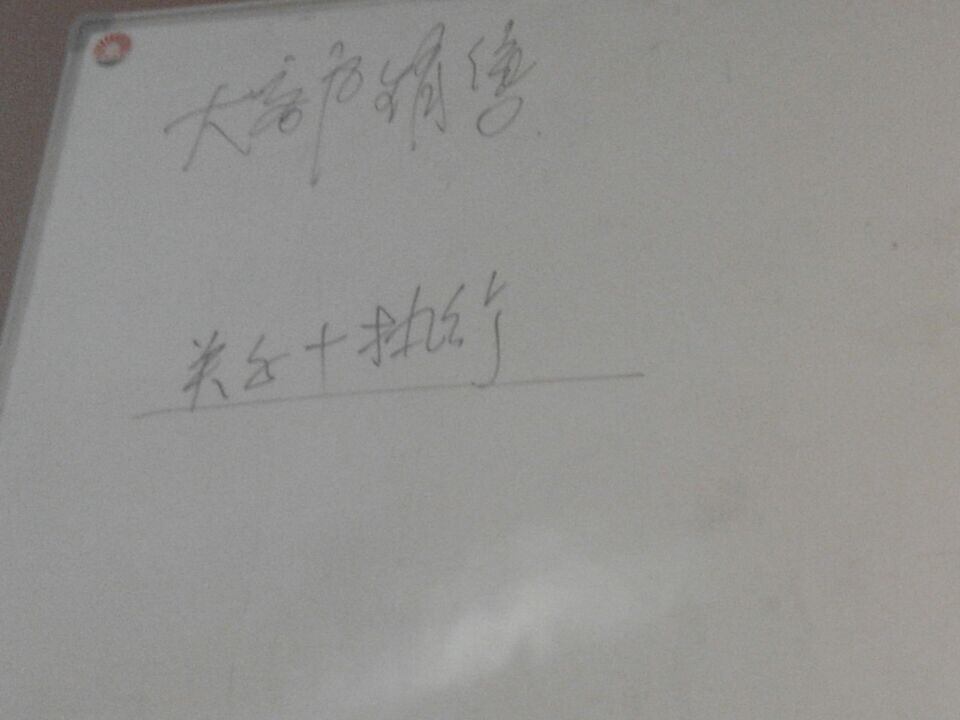 大客户销售
关系+执行